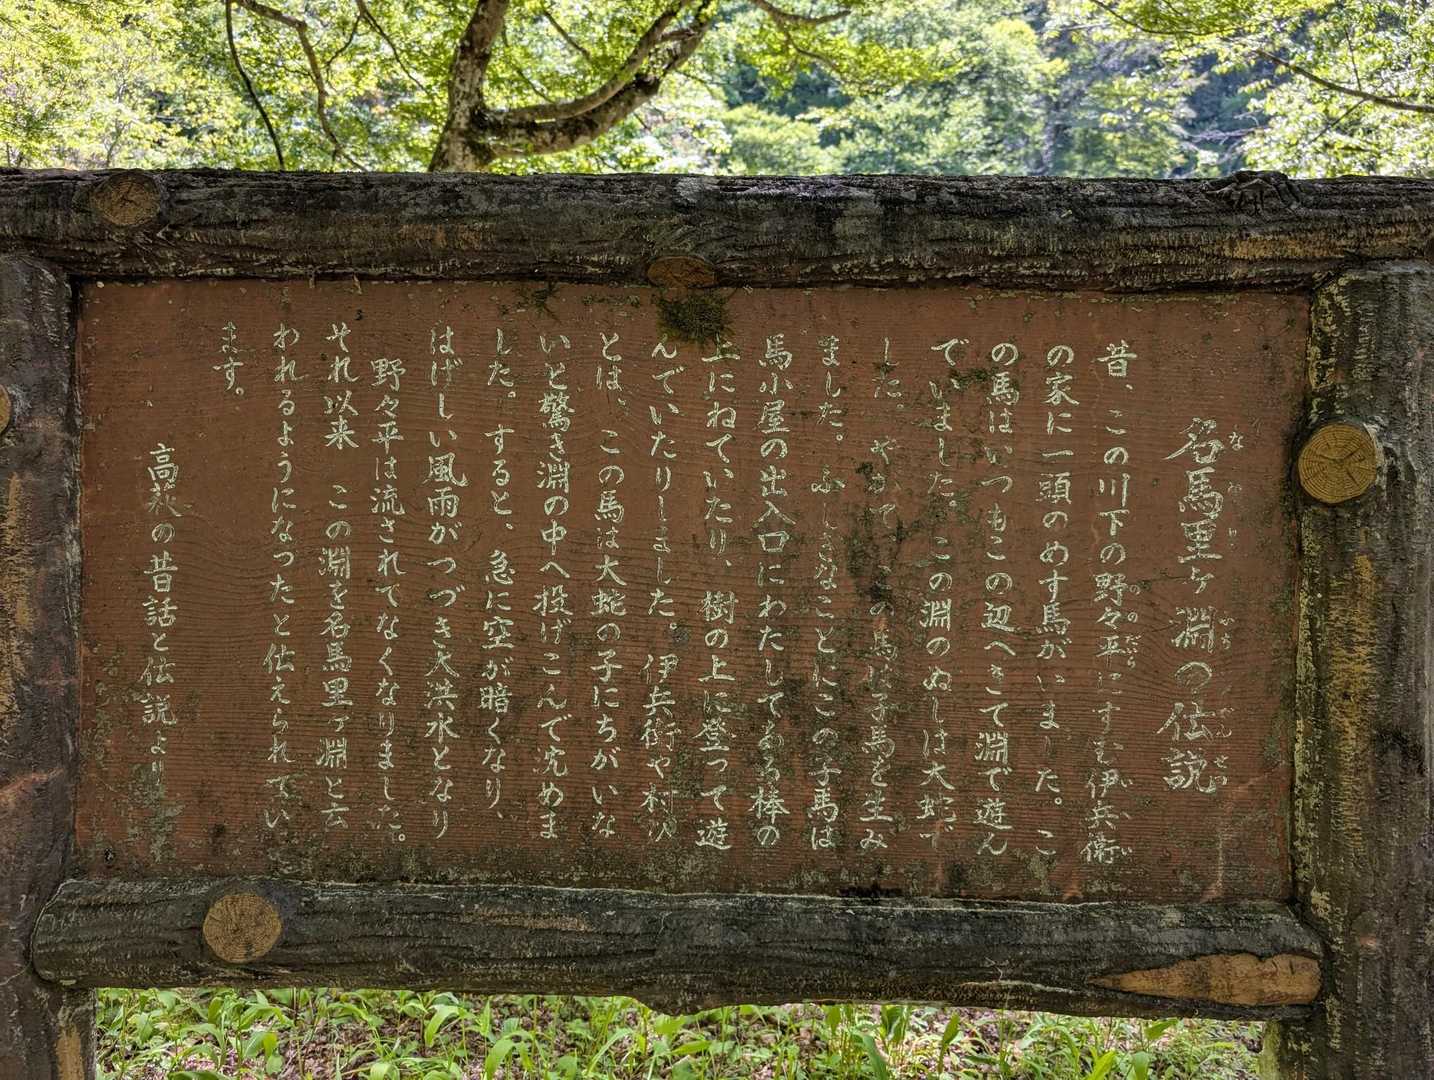 名馬里ヶ淵の伝説
昔、この川下の野々平にすむ伊兵衛
の家に一頭のめす馬がいました。こ
の馬はいつもこの辺へきて淵で遊ん
でいました。この淵のぬしは大蛇で
した。やがてこの馬は子馬を生み
ました。ふしぎなことにこの子馬は
馬小屋の出入口にわたしてある棒の
上にねていたり、樹の上に登って遊
んでいたりしました。伊兵衛や村び
とは、この馬は大蛇の子にちがいな
いと驚き淵の中へ投げこんで沈めま
した。すると、急に空が暗くなり、
はげしい風雨がつづき大洪水となり
野々平は流されてなくなりました。
それ以来 この淵を名馬里ヶ淵と云
われるようになったと伝えられてい
ます。
高秋の昔話と伝説より